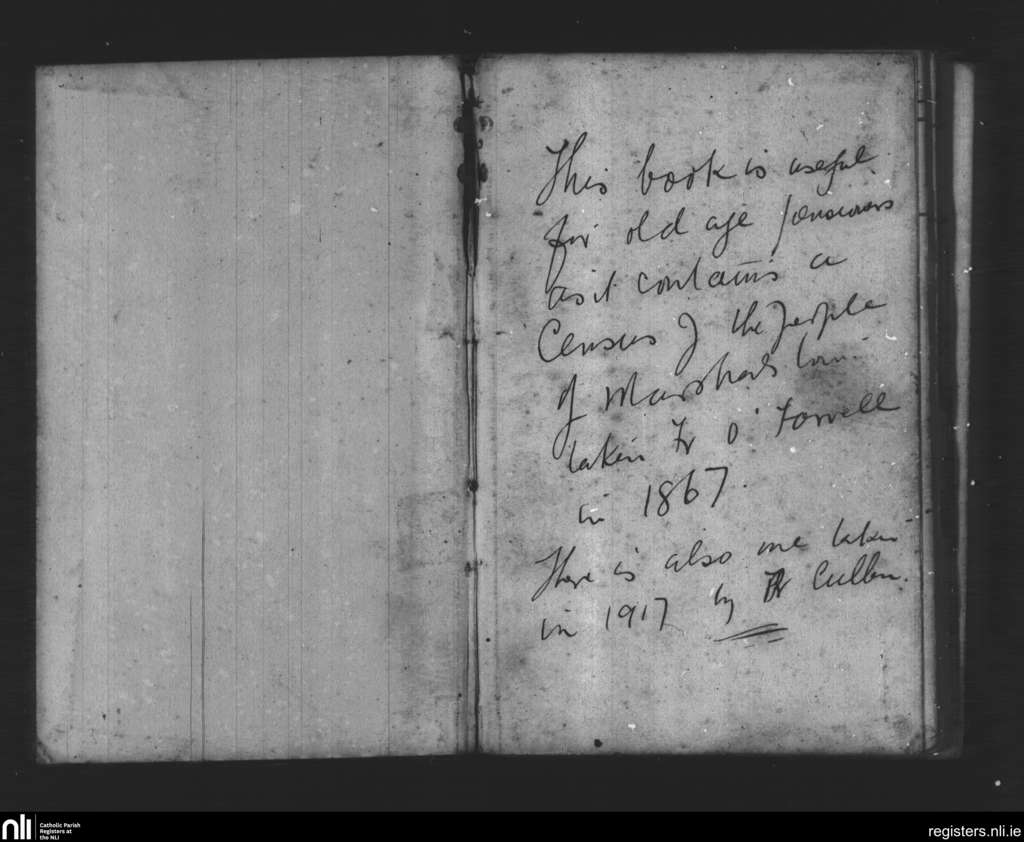 This book is useful
for old age pensioners
as it contains a
Census of the people
of Marshalstown
taken Fr O'Farrell
in 1867.
There is also one taken
in 1917 by Fr Cullen.
nli
Catholic Parish
Registers at
the NLI
registers.nli.ie